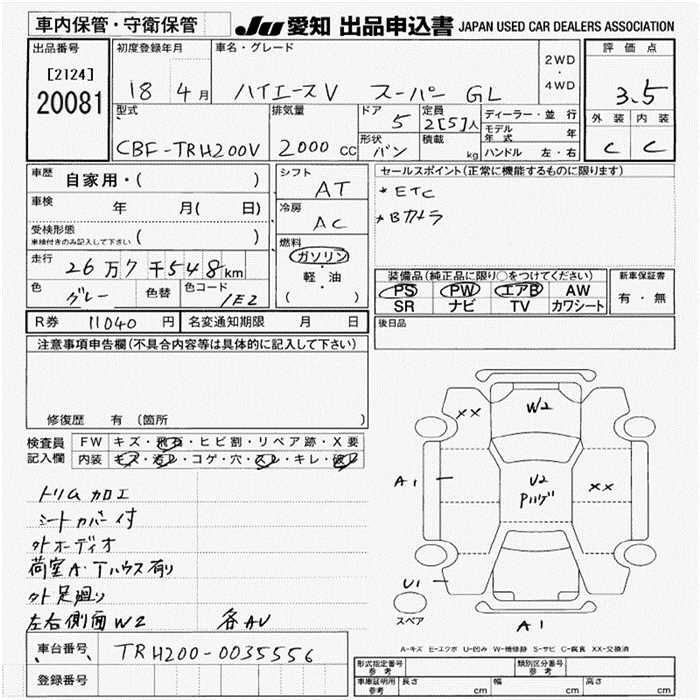 車内保管・守衛保管 JU 愛知 出品申込書 JAPAN USED CAR DEALERS ASSOCIATION
出品番号 初度登録年月 車名・グレード 評価点
[2124] 2WD
・
20081 18 4月 ハイエースV スーパー GL 4WD 3.5
型式 排気量 ドア 5 定員 2[5]人 ディーラー・並行 外装 内装
モデル年式 年
CBF-TRH200V 2000 CC 形状 バン 積載 kg ハンドル 左・右 C C
車歴 自家用・( ) シフト AT セールスポイント(正常に機能するものに限ります)
車検 年 月( 日) 冷房 AC ・ETC
受検形態 ( ) ・Bカメラ
車検付きのみ記入して下さい
燃料
走行 26万7千548km ガソリン 装備品(純正品に限り○をつけてください) 新車保証書
色 グレー 色替 色コード 1E2 軽・油 PS PW エアB AW 有・無
( ) SR ナビ TV カワシート
R券 11040 円 名変通知期限 月 日 後日品
注意事項申告欄(不具合内容等は具体的に記入して下さい)
修復歴 有 〔箇所 〕
検査員 FW キズ・飛石・ヒビ割・リペア跡・X要
記入欄 内装 キズ・汚レ・コゲ・穴・スレ・キレ・破レ
トリム加工
シートカバー付
外オーディオ
荷室A・Tハウス有り
外足廻り
左右側面W2 各AU
XX W2
A1 U2 XX
Pハゲ
U1
スペア A1
A-キズ E-エクボ U-凹み W-補修跡 S-サビ C-腐食 XX-交換済
車台番号 TRH200-0035556
登録番号
形式指定番号 参考 類別区分番号 参考
車庫証明用 参考 長さ cm 幅 cm 高さ cm